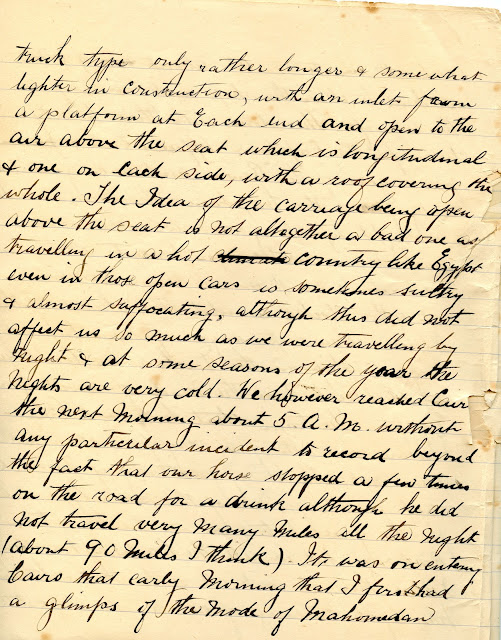 truck type only rather longer & some what
lighter in construction, with an inlet from
a platform at Each end and open to the
air above the seat which is longitudinal
& one on each side, with a roof covering the
whole. The Idea of the carriage being open
above the seat is not altogether a bad one as
travelling in a hot climate country like Egypt
even in those open cars is sometimes sultry
& almost suffocating, although this did not
affect us so much as we were travelling by
Night & at some seasons of the year the
Nights are very cold. We however reached Cairo
the next Morning about 5 A.M. without
any particular incident to record beyond
the fact that our horse stopped a few times
on the road for a drink although he did
not travel very many Miles all the Night
(about 90 Miles I think). It was on entering
Cairo that early Morning that I first had
a glimps of the Mode of Mahomedan